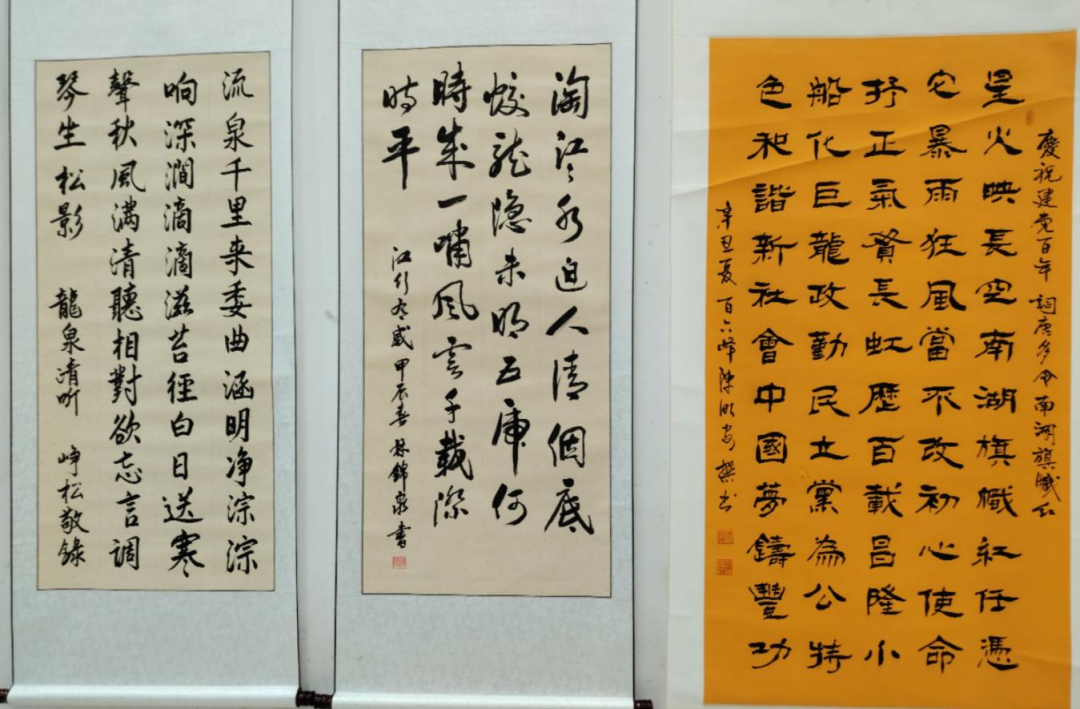 慶祝建党百年 詞唐多令南湖旗幟紅
星火映長空南湖旗幟紅任憑
它暴雨狂風當不改初心使命
抒正氣貫長虹歷百載昌隆小
船化巨龍政勤民立黨為公特
色和諧新社會中國夢鑄豐功
辛丑夏百六峰陳湖 撰书
淘江江水迫人清個底
蛟龍隐未明五虎何
時成一嘯風雲千載際
時平
江行有感甲辰春林錦泉書
流泉千里来委曲涵明净淙淙
响深澗滴滴滋苔徑白日送寒
聲秋風满清聽相對欲忘言調
琴生松影 龍泉清听 峥松敬錄